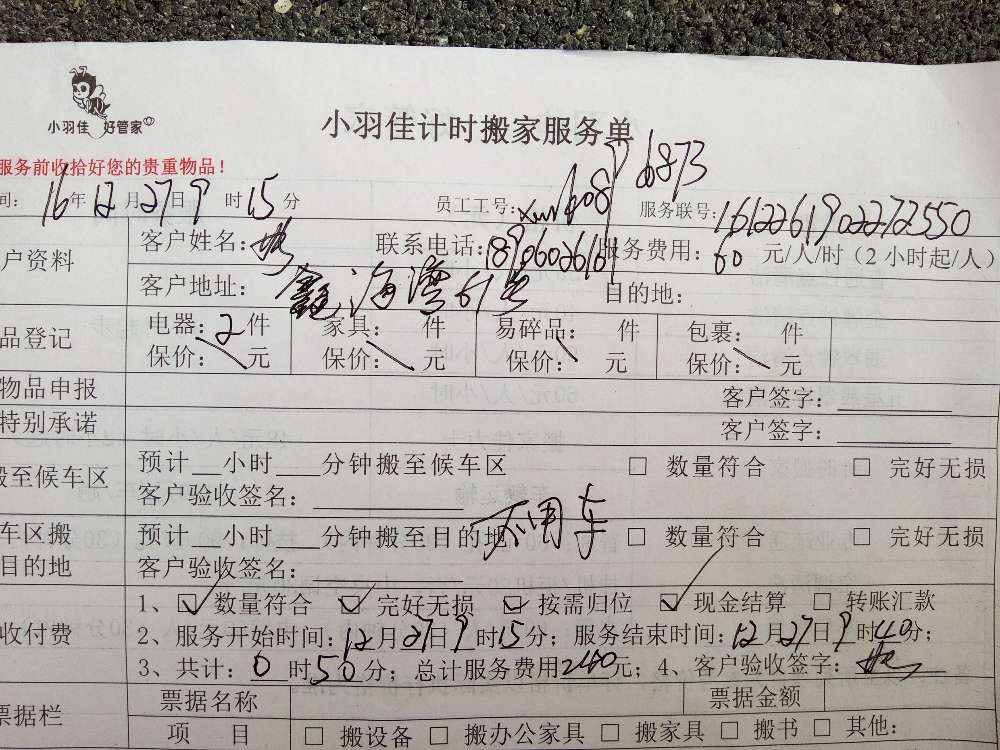 小羽佳 好管家
小羽佳计时搬家服务单
服务前收拾好您的贵重物品！
间： 16年12月27日9时15分 员工工号： 服务联号：1612261902272550
户资料 客户姓名： 联系电话： 服务费用：60元/人/时（2小时起/人）
客户地址：鑫海湾 目的地：
品登记 电器：2件 家具： 件 易碎品： 件 包裹： 件
保价： 元 保价： 元 保价： 元 保价： 元
物品申报 客户签字：
特别承诺 客户签字：
搬至候车区 预计 小时 分钟搬至候车区 □ 数量符合 □ 完好无损
客户验收签名：
不用车
车区搬 预计 小时 分钟搬至目的地 □ 数量符合 □ 完好无损
目的地 客户验收签名：
1、☑ 数量符合 ☑ 完好无损 ☑ 按需归位 ☑ 现金结算 □ 转账汇款
收付费 2、服务开始时间：12月27日9时15分；服务结束时间：12月27日9时40分；
3、共计：0时50分；总计服务费用240元；4、客户验收签字：
票据栏 票据名称 票据金额
项 目 □ 搬设备 □ 搬办公家具 □ 搬家具 □ 搬书 □ 其他：